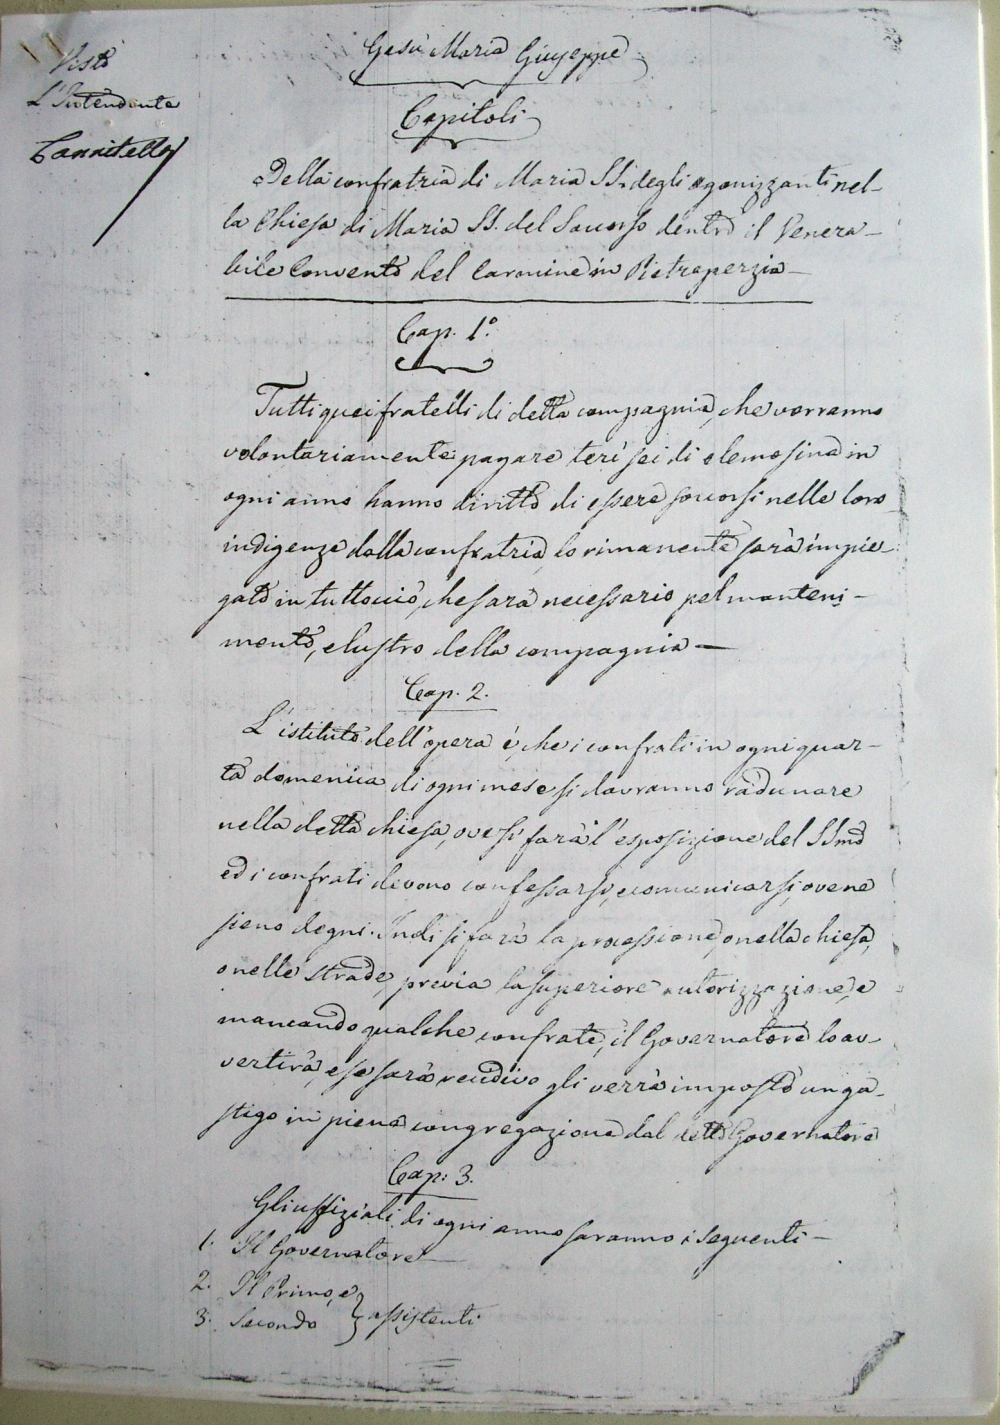 Gesù Maria Giuseppe
Visto
L'Intendente
Capitoli
Della confratria di Maria SS. degli agonizzanti nel-
la Chiesa di Maria SS. del Soccorso dentro il Venera-
bile Convento del Carmine in Pietraperzia
Cap. 1º.
Tutti quei fratelli di detta compagnia, che vorranno
volontariamente pagare terì sei di elemosina in
ogni anno hanno diritto di essere soccorsi nelle loro
indigenze dalla confratria, lo rimanente sarà impie-
gato in tuttociò, che sarà necessario pel manteni-
mento, e lustro della compagnia —
Cap. 2.
L'istituto dell'opera é, che i confrati in ogni quar-
ta domenica di ogni mese si dovranno radunare
nella detta chiesa, ove si farà l'esposizione del SSmo
ed i confrati devono confessarsi, e comunicarsi, ove ne
sieno degni. Indi si farà la processione, o nella chiesa,
o nelle strade, previa la superiore autorizzazione, e
mancando qualche confrate, il Governatore lo av-
vertirà, e se sarà recidivo gli verrà imposto un ga-
stigo in piena congregazione dal detto Governatore
Cap: 3.
Gli uffiziali di ogni anno saranno i seguenti —
1. Il Governatore —
2. Il Primo, e
3. Secondo } assistenti